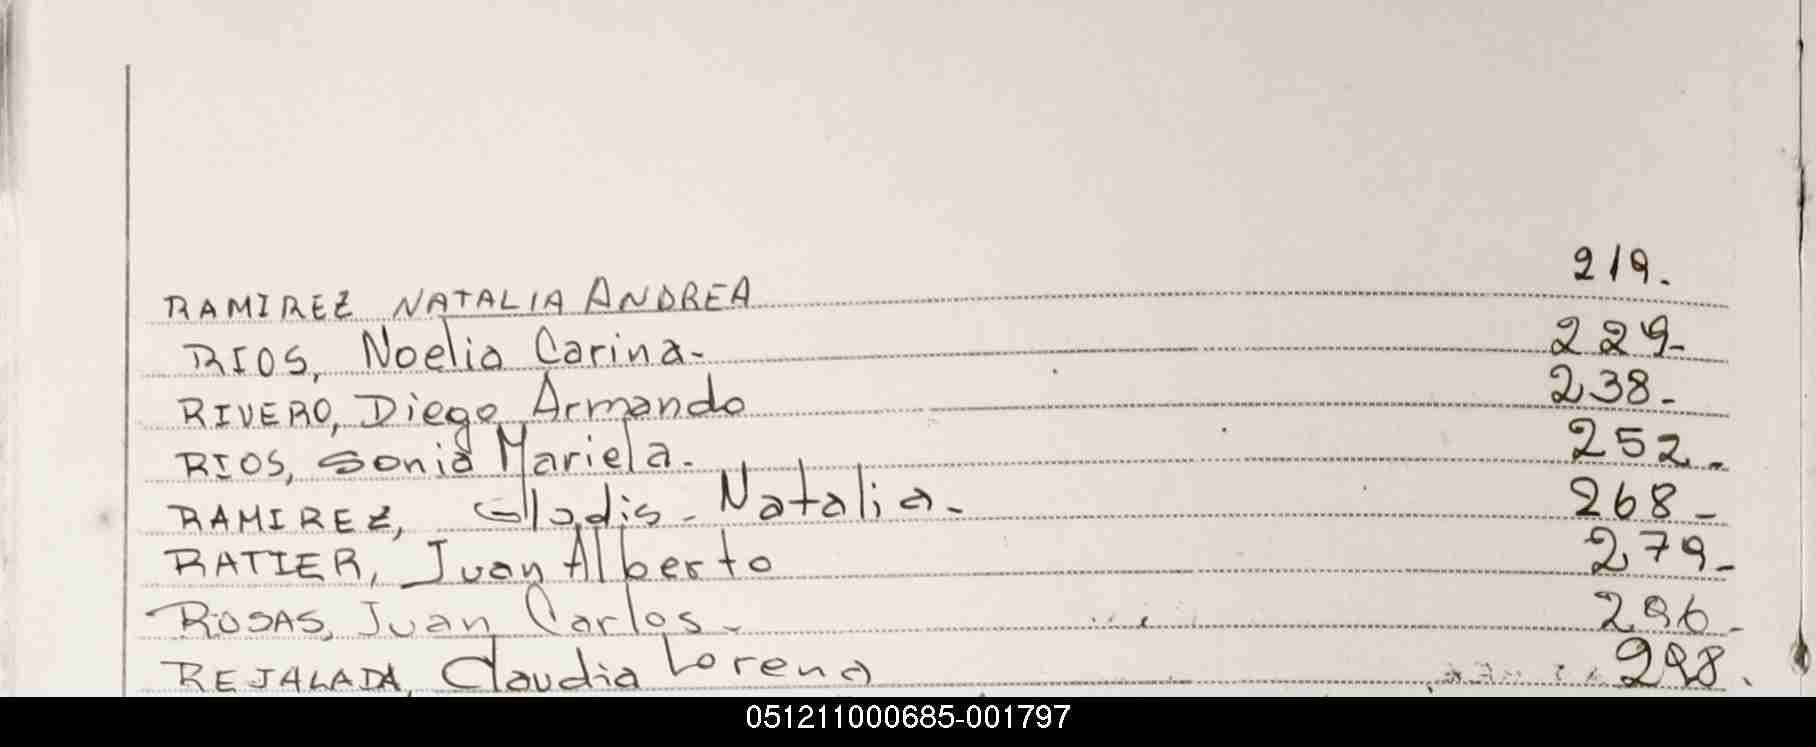 RAMIREZ NATALIA ANDREA 219.
RIOS, Noelia Carina- 229-
RIVERO, Diego Armando 238-
RIOS, Sonia Mariela. 252-
RAMIREZ, Gladis - Natalia - 268-
RATIER, Juan Alberto 279-
ROSAS, Juan Carlos - 296-
REJALADA, Claudia Lorena 298.
051211000685-001797